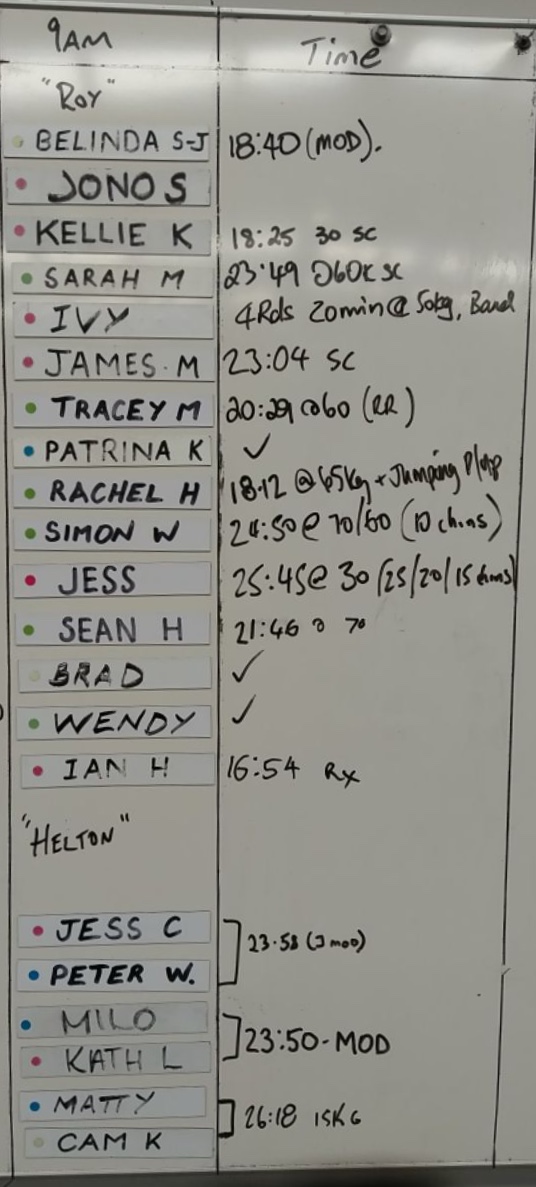 9AM Time
"ROY"
BELINDA S-J 18:40 (MOD).
JONO S
KELLIE K 18:25 30 SC
SARAH M 23:49 @60K SC
IVY 4Rds 20min @ 50kg, Band
JAMES M 23:04 SC
TRACEY M 20:29 @60 (RR)
PATRINA K ✓
RACHEL H 18:12 @ 65kg + Jumping
SIMON W @ 70/60 (10 chins)
JESS 25:45 @ 30 (25/20/15 chins)
SEAN H 21:46 @ 70
BRAD ✓
WENDY ✓
IAN H 16:54 Rx
"HELTON"
JESS C
23:58 (J MOD)
PETER W.
MILO
23:50-MOD
KATH L
MATTY
26:18 15KG
CAM K